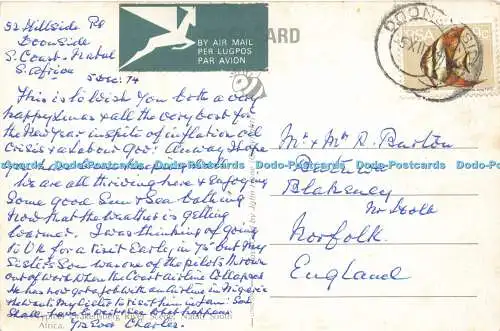 52 Hillside Rd
Doonside
S. Coast. Natal
S. Africa
5 Dec. 74
BY AIR MAIL
PER LUGPOS
PAR AVION
CARD
DOONSIDE
RSA
This is to wish you both a very
happy Xmas & all the very best for
the New Year inspite of inflation oil
Crisis & a labour Gov! Anyway I hope
you
Dodo-Postcards Dodo-Postcards Dodo-Postcards Dodo-Postcards Dodo-Postcards
We are all thriving here & enjoying
Some good Sun & Sea bathing
now that the weather is getting
warmer. I was thinking of going
to U.K for a visit Early in 75 but my
Sisters Son was one of the pilots thrown
out of work when the Court airline Collapsed
He has now got a job with an airline in Nigeria
he wants my sister to visit him in Jan: So I
Shall have to wait & see what happens
Yrs Ever Charles.
Mr & Mrs R. Burton
Blakeney
Nr Holt
Norfolk.
England
River
South
Africa.